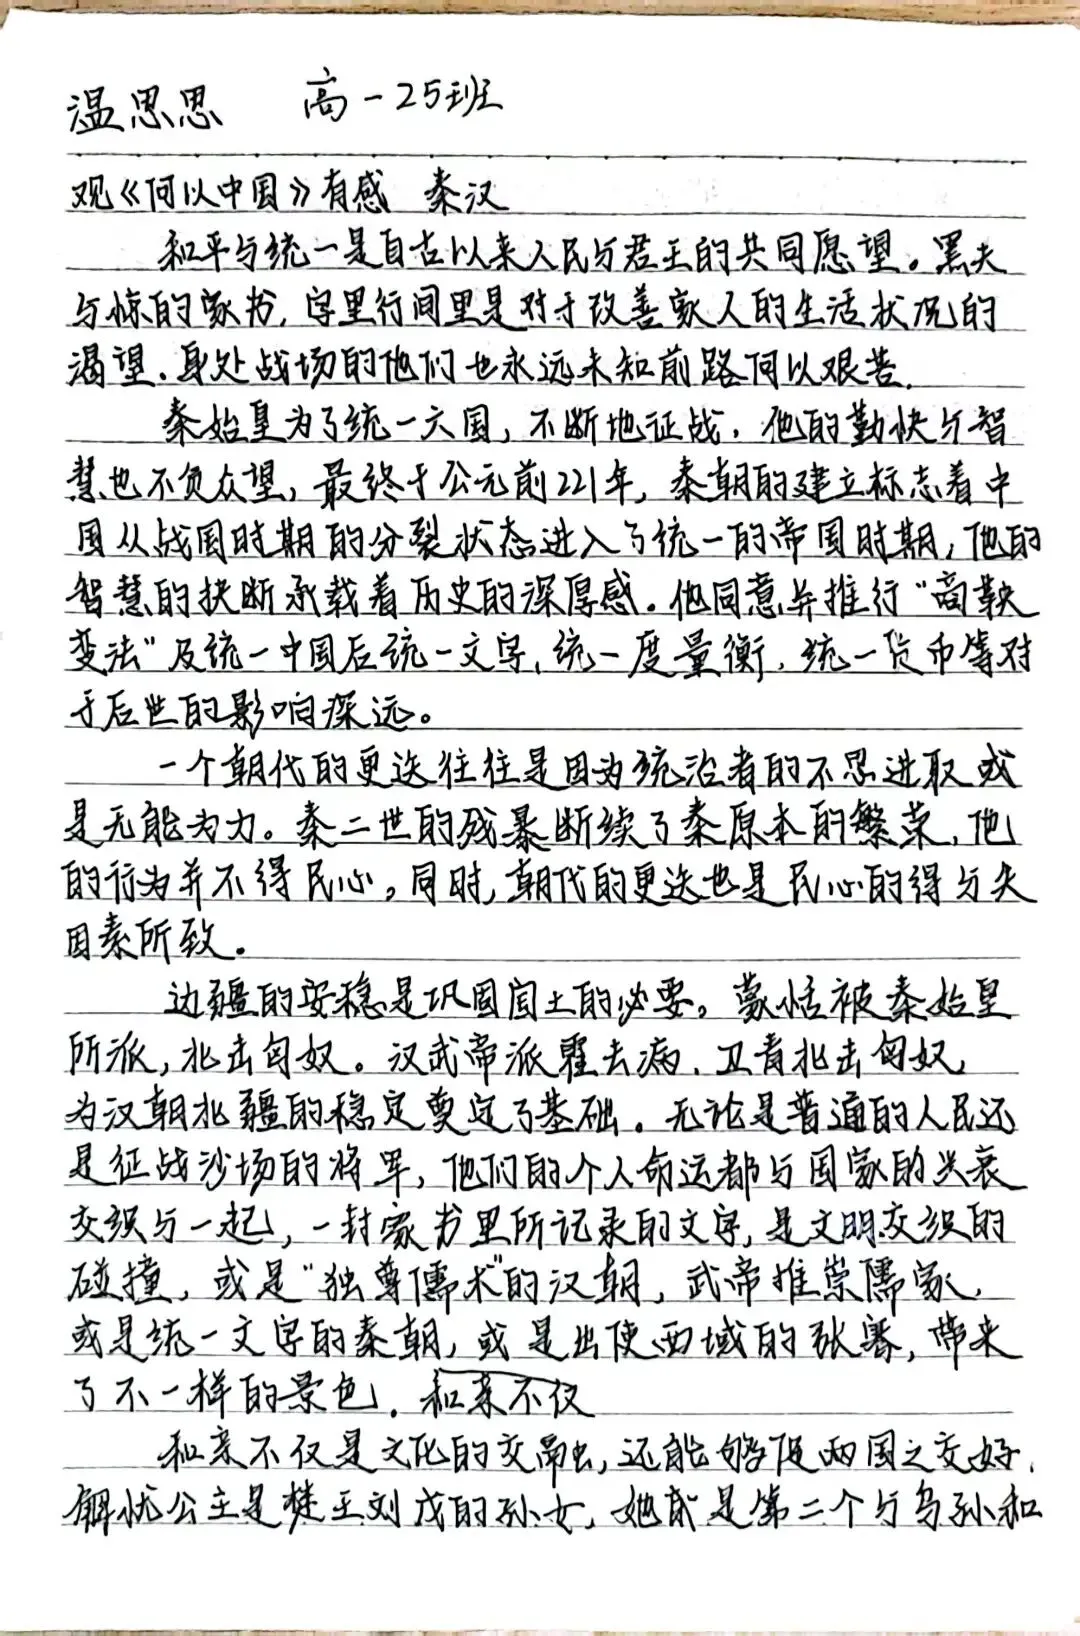 温思思 高一25班
观《何以中国》有感 秦汉
和平与统一是自古以来人民与君王的共同愿望。黑夫
与惊的家书，字里行间里是对于改善家人的生活状况的
渴望，身处战场的他们也永远未知前路何以艰苦。
秦始皇为了统一六国，不断地征战，他的勤快与智
慧也不负众望，最终于公元前221年，秦朝的建立标志着中
国从战国时期的分裂状态进入了统一的帝国时期，他的
智慧的抉断承载着历史的深厚感。他同意并推行“商鞅
变法”及统一中国后统一文字，统一度量衡，统一货币等对
于后世的影响深远。
一个朝代的更迭往往是因为统治者的不思进取或
是无能为力。秦二世的残暴断续了秦原本的繁荣，他
的行为并不得民心。同时，朝代的更迭也是民心的得与失
因素所致。
边疆的安稳是巩固国土的必要。蒙恬被秦始皇
所派，北击匈奴。汉武帝派霍去病、卫青北击匈奴，
为汉朝北疆的稳定奠定了基础。无论是普通的人民还
是征战沙场的将军，他们的个人命运都与国家的兴衰
交织与一起，一封家书里所记录的文字，是文明交织的
碰撞，或是“独尊儒术”的汉朝，武帝推崇儒家，
或是统一文字的秦朝，或是出使西域的张骞，带来
了不一样的景色。和亲不仅
和亲不仅是文化的交融，还能够促两国之交好，
解忧公主是楚王刘戊的孙女，她就是第二个与乌孙和